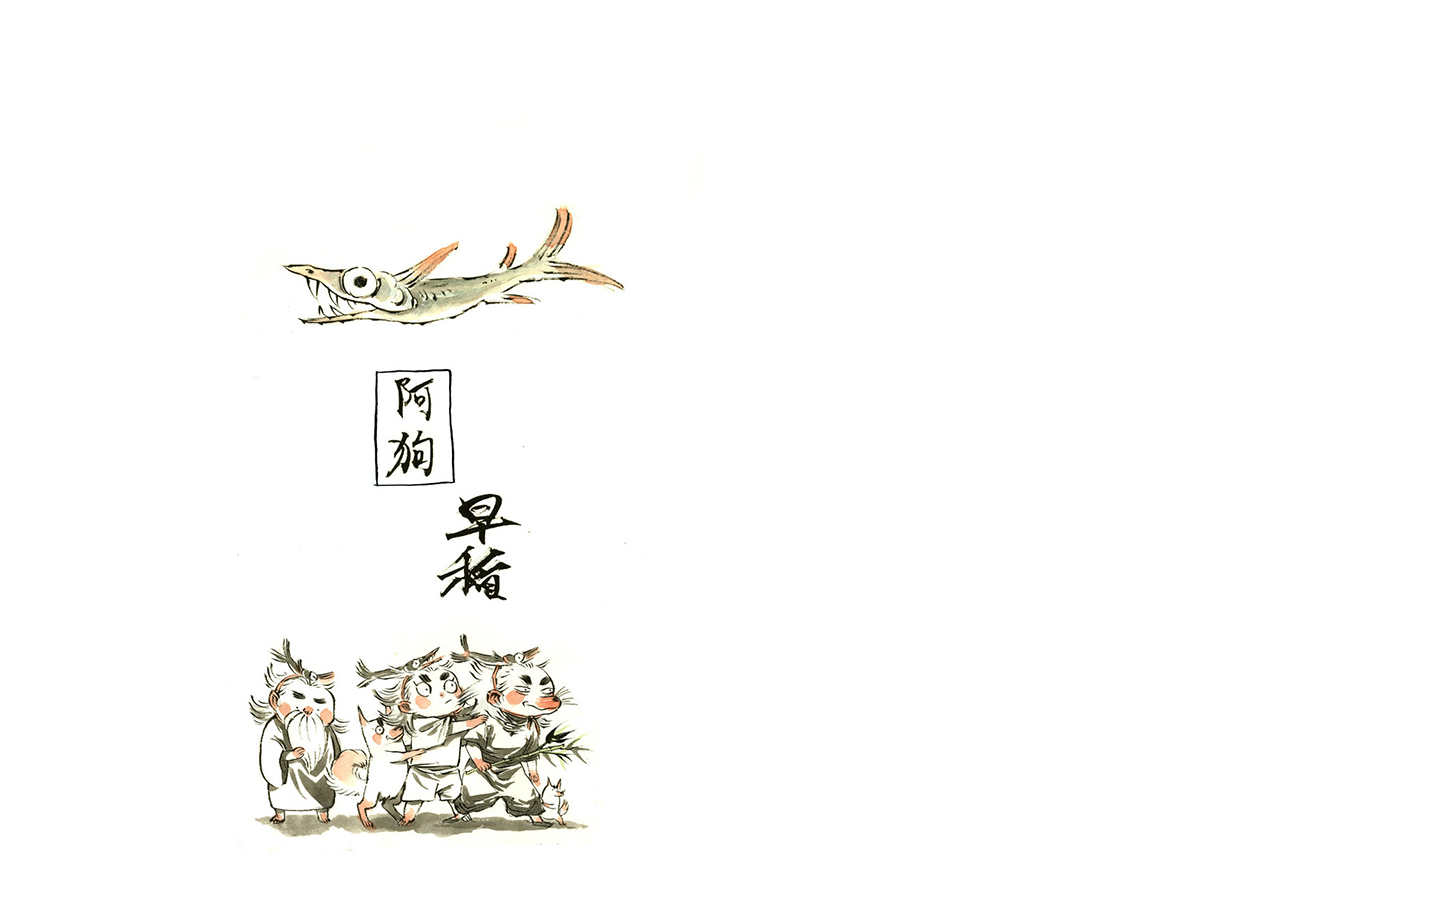 阿狗
早稻